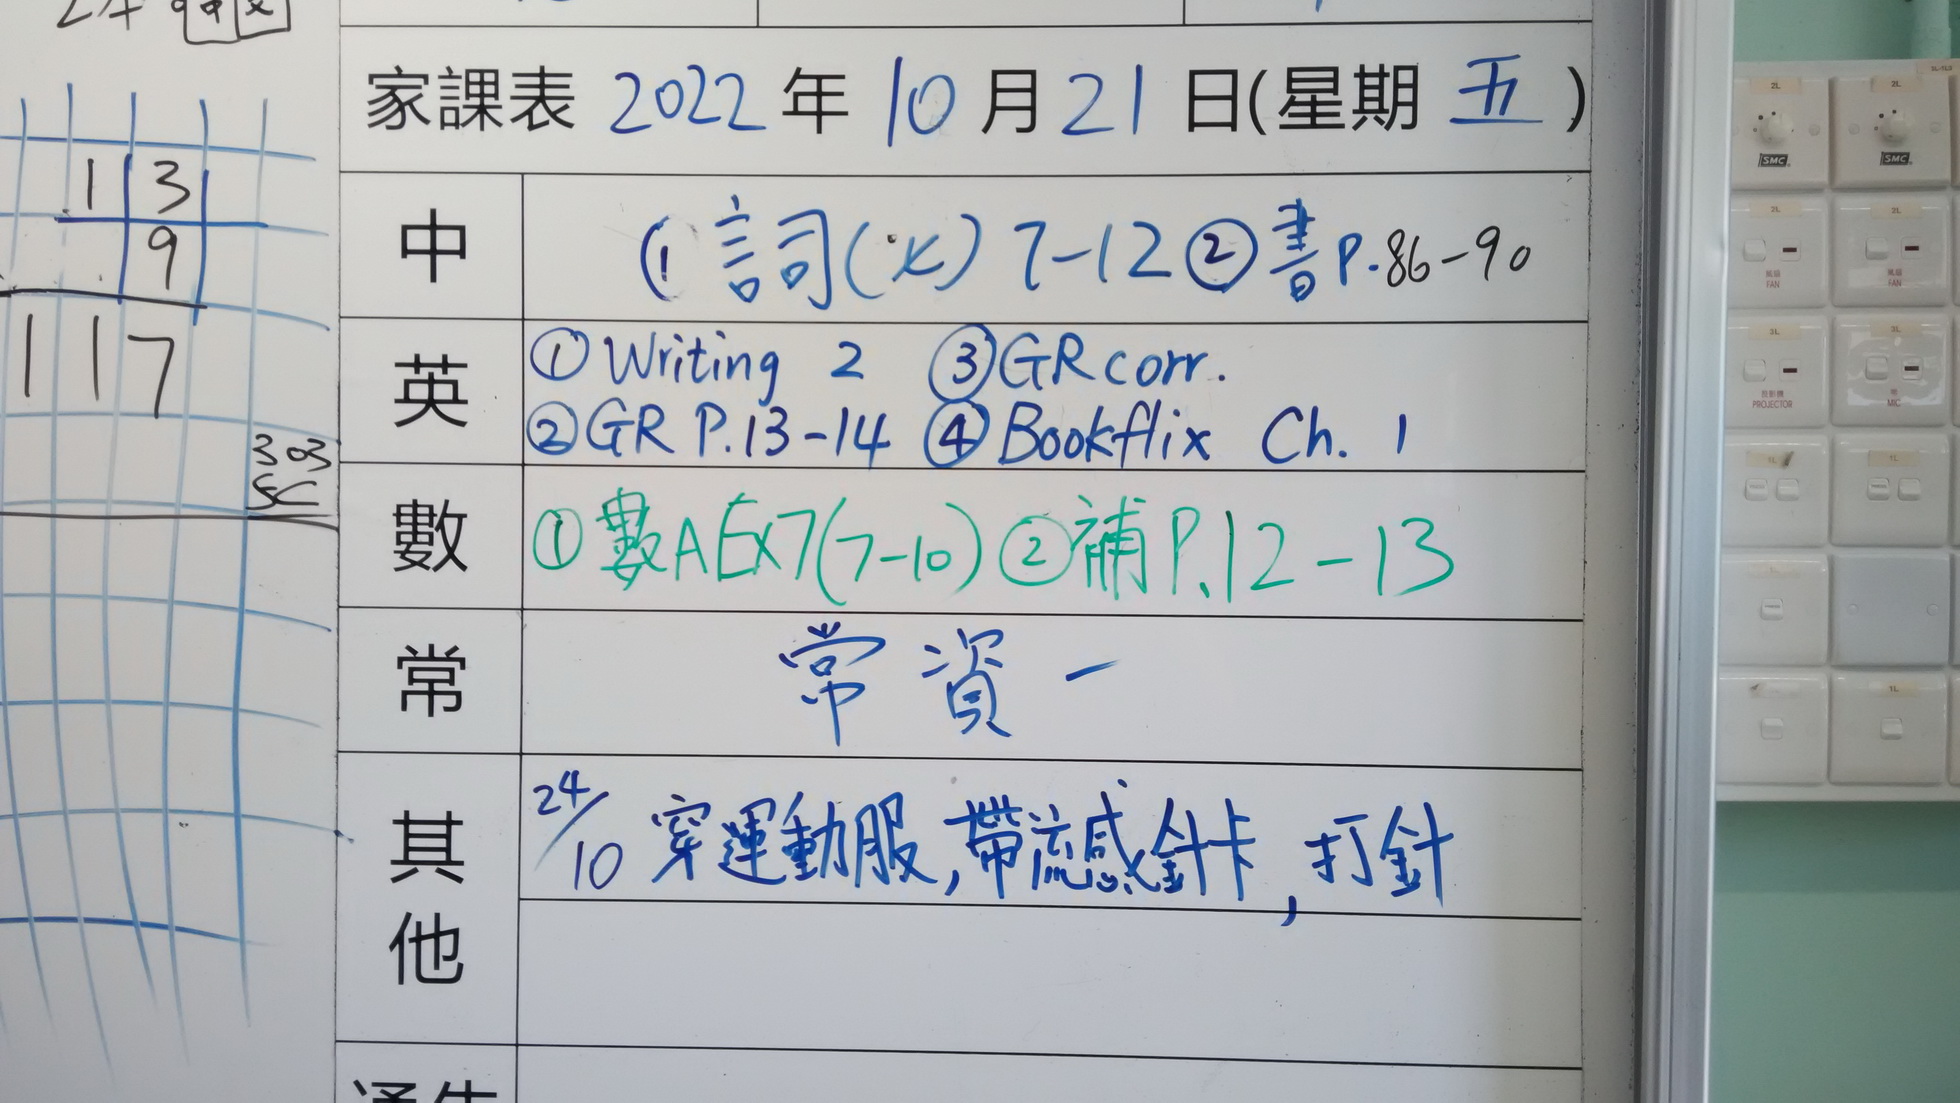 家課表 2022 年 10 月 21 日(星期 五)
中
① 詞(文) 7-12 ② 書 P.86-90
英
① Writing 2 ③ GR corr.
② GR P.13-14 ④ Bookflix Ch. 1
數
① 數A Ex7(7-10) ② 補 P.12-13
常
常資一
其他
24/10 穿運動服,帶流感針卡,打針
13
9
117
303
SC
2L
2L
SMC
SMC
2L
2L
風扇
FAN
風扇
FAN
3L
3L
投影機
PROJECTOR
MIC
1L
1L
1L